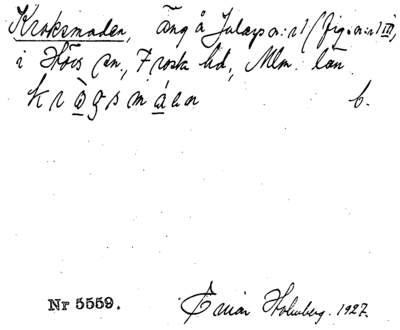 Kroksmaden, äng å Jularps n:r 1 (fig. n:r 1 III),
i Höörs sn., Frosta hd, Mlm. län
krògsmáen b.
Nr 5559. Einar Holmberg. 1927.